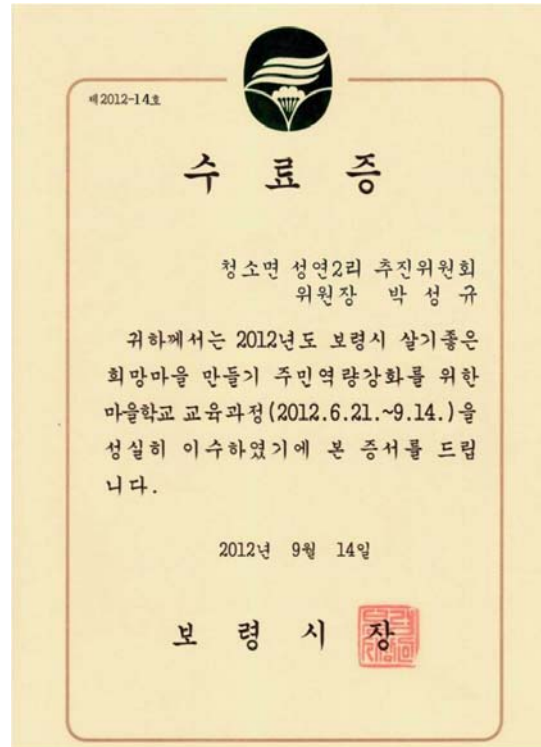 제2012-14호
수 료 증
청소면 성연2리 추진위원회
위원장 박 성 규
귀하께서는 2012년도 보령시 살기좋은
희망마을 만들기 주민역량강화를 위한
마을학교 교육과정(2012.6.21.~9.14.)을
성실히 이수하였기에 본 증서를 드립
니다.
2012년 9월 14일
보 령 시 장